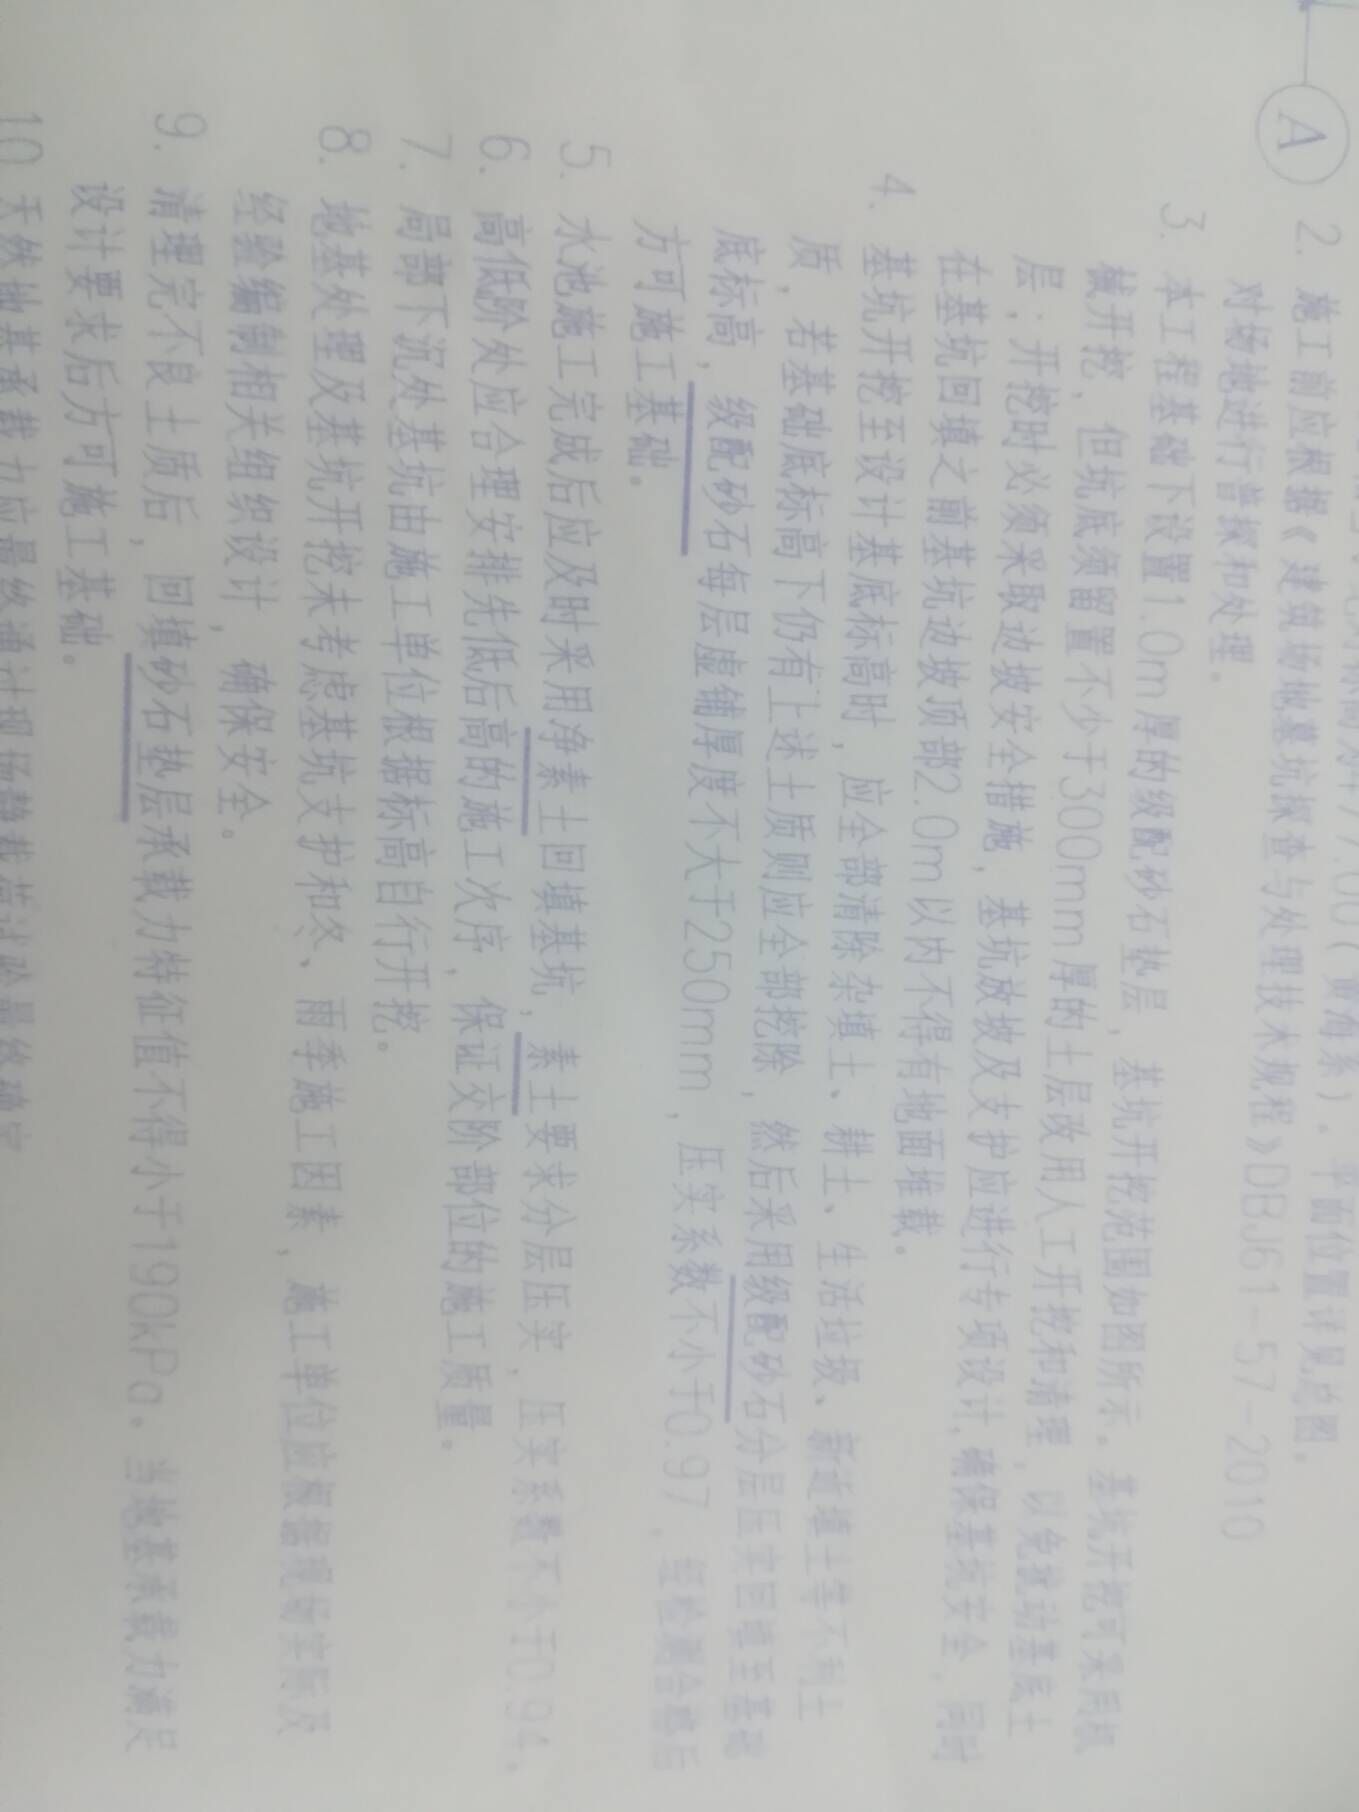 标高为+77.00(黄海系)。平面位置详见总图。
A
2. 施工前应根据《建筑场地墓坑探查与处理技术规程》DBJ61-57-2010
对场地进行普探和处理。
3. 本工程基础下设置1.0m厚的级配砂石垫层，基坑开挖范围如图所示。基坑开挖可采用机
械开挖，但坑底须留置不少于300mm厚的土层改用人工开挖和清理，以免扰动基底土
层；开挖时必须采取边坡安全措施，基坑放坡及支护应进行专项设计,确保基坑安全，同时
在基坑回填之前基坑边坡顶部2.0m以内不得有地面堆载。
4. 基坑开挖至设计基底标高时，应全部清除杂填土、耕土、生活垃圾、新近填土等不利土
质，若基础底标高下仍有上述土质则应全部挖除，然后采用级配砂石分层压实回填至基础
底标高，级配砂石每层虚铺厚度不大于250mm，压实系数不小于0.97，经检测合格后
方可施工基础。
5. 水池施工完成后应及时采用净素土回填基坑，素土要求分层压实，压实系数不小于0.94。
6. 高低阶处应合理安排先低后高的施工次序，保证交阶部位的施工质量。
7. 局部下沉处基坑由施工单位根据标高自行开挖。
8. 地基处理及基坑开挖未考虑基坑支护和冬、雨季施工因素，施工单位应根据现场实际及
经验编制相关组织设计，确保安全。
9. 清理完不良土质后，回填砂石垫层承载力特征值不得小于190kPa。当地基承载力满足
设计要求后方可施工基础。
10 天然地基承载力应最终通过现场静载荷试验最终确定